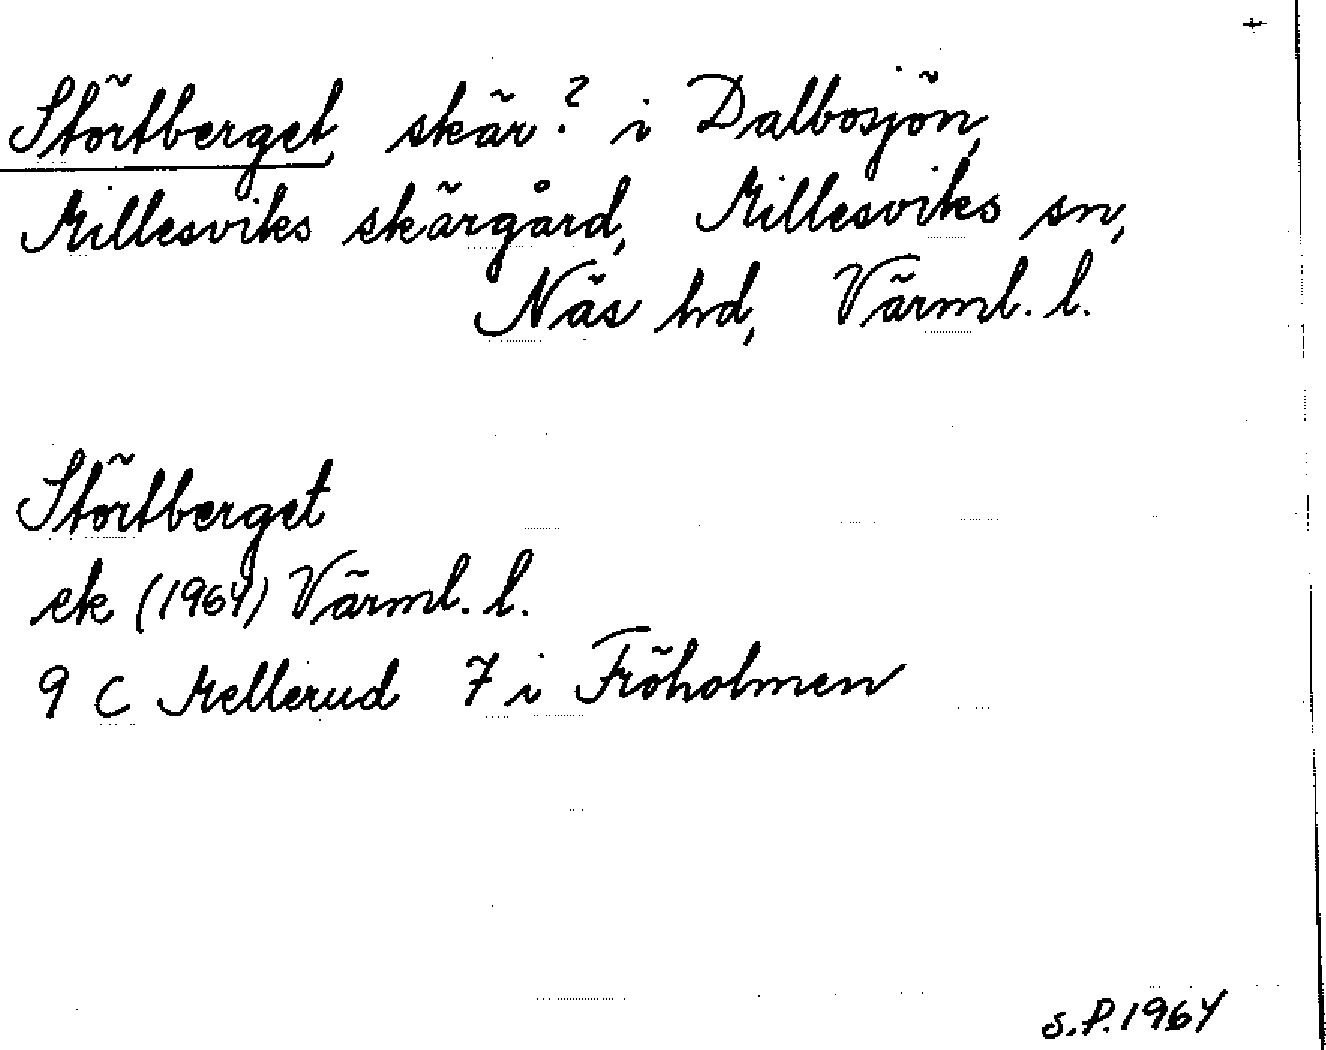 Störtberget, skär? i Dalbosjön,
Millesviks skärgård, Millesviks sn,
Näs hd, Värml. l.
Störtberget
ek (1964) Värml. l.
9 C Mellerud 7 i Fröholmen
S.P. 1964